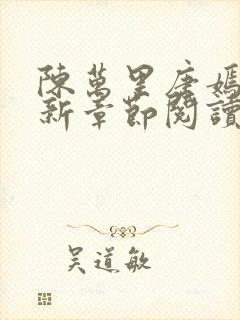 陳萬里唐嫣
新章節閱讀
吴道敏